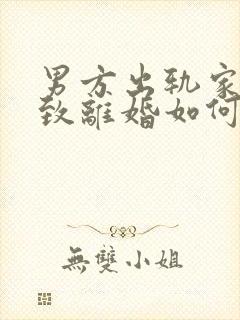 男方出轨家
致離婚如何
無雙小姐